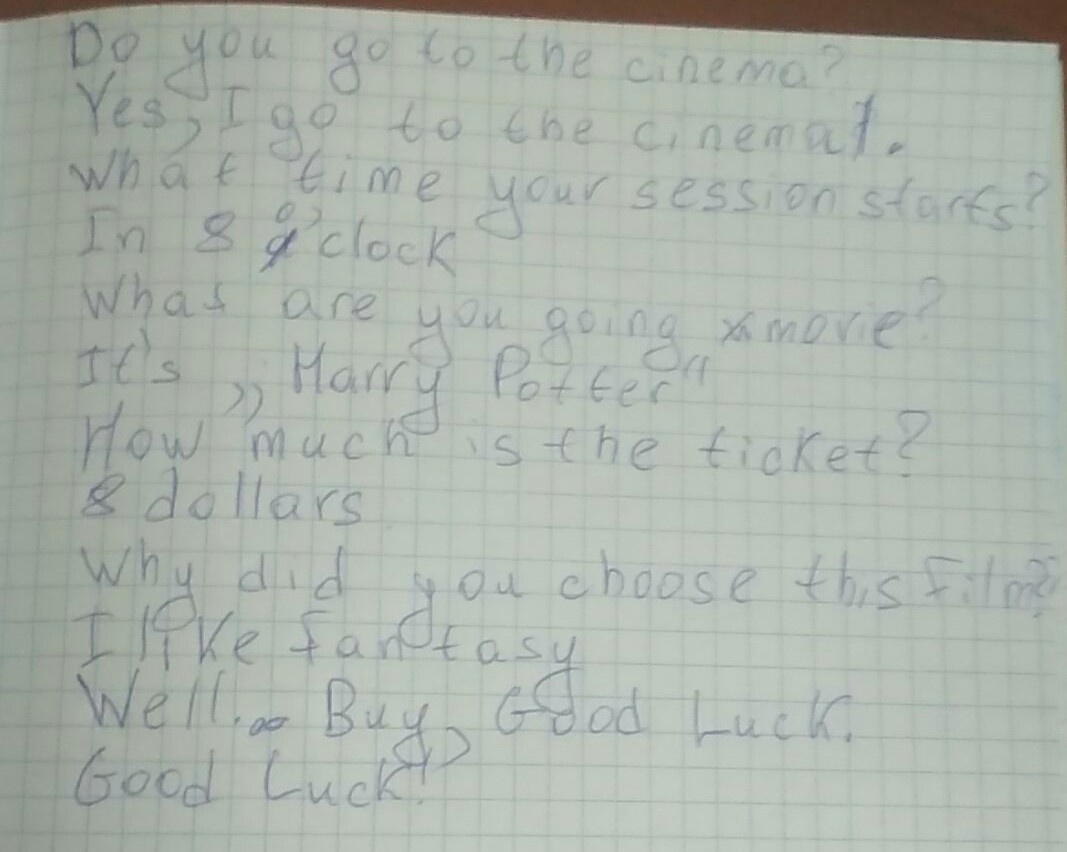 Do you go to the cinema?
Yes, I go to the cinema.
What time your session starts?
In 8 o'clock
Whas are you going movie?
It's „Harry Potter"
How much is the ticket?
8 dollars
Why did you choose this film?
I like fantasy
Well... Buy, Good Luck.
Good Luck!